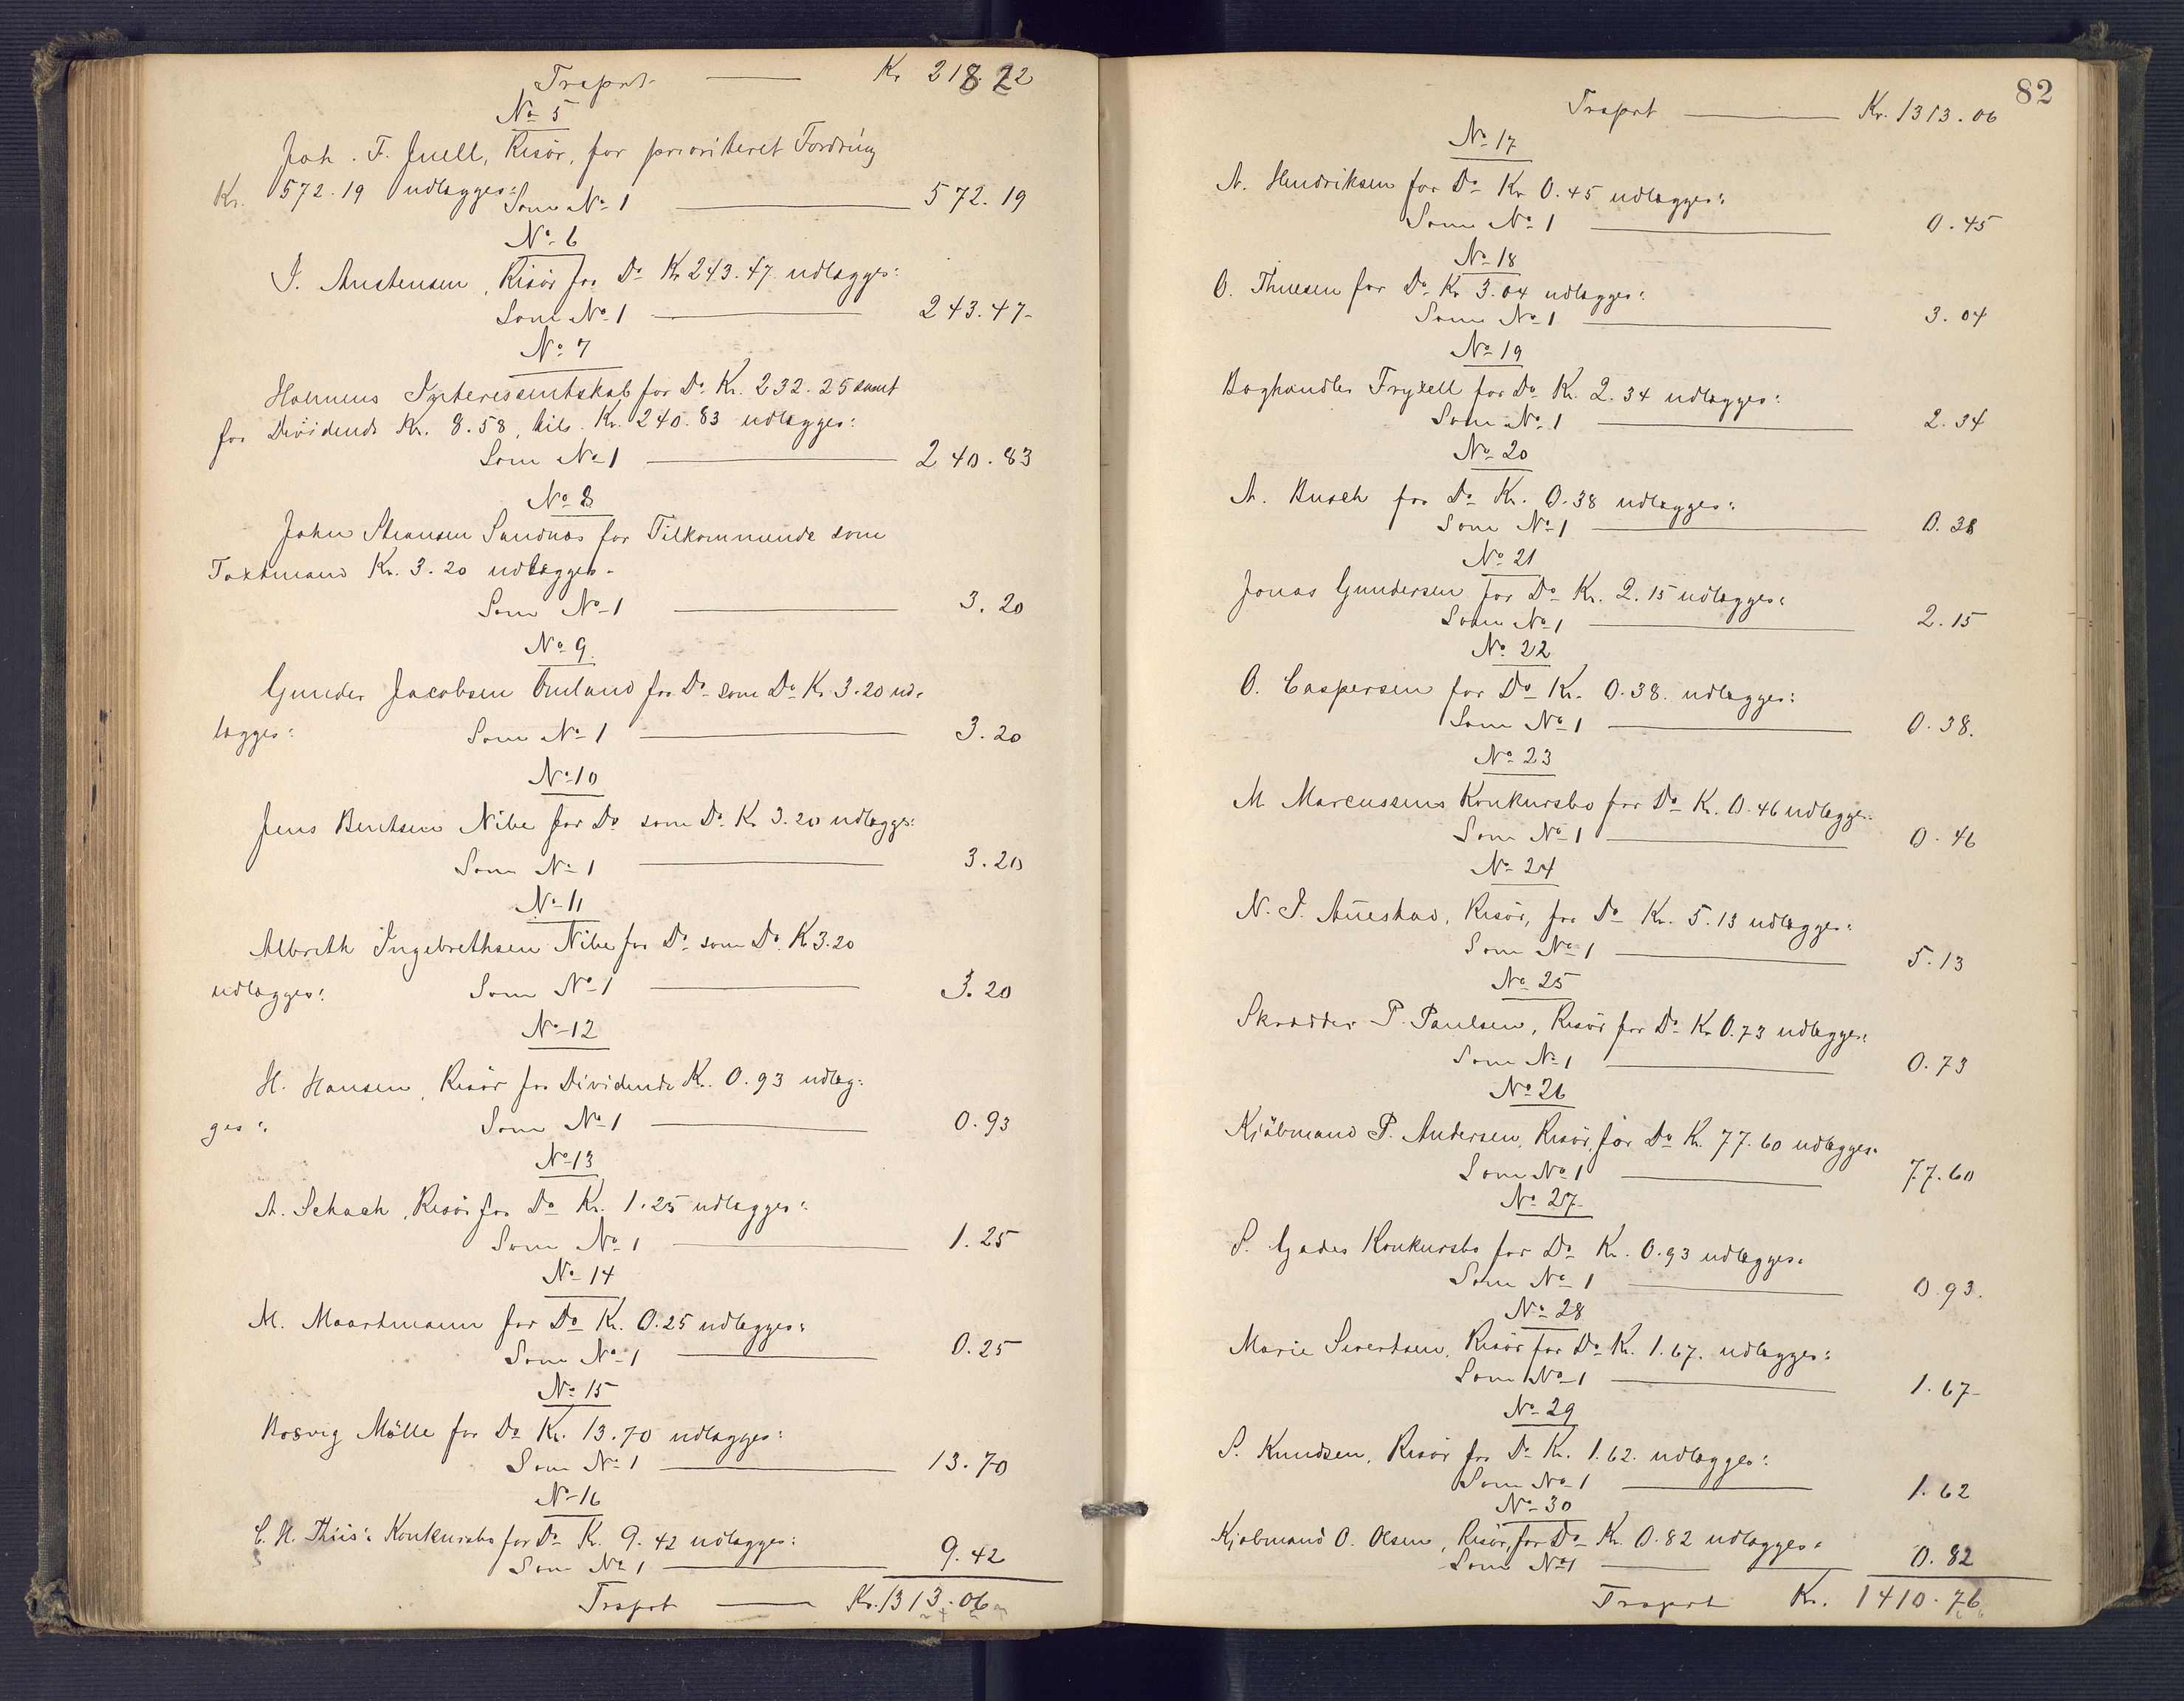 Trsprt — Kr 218.22
No 5
Joh. F. Juell, Risör, for prioriteret Fordring
Kr. 572.19 udlægges:
Som No 1 — 572.19
No 6
I. Austensen, Risör for Do Kr 243.47 udlægges:
Som No 1 — 243.47
No 7
Holmens Interessentskab for Do Kr. 232.25 samt
for Dividende Kr. 8.58, tils. Kr. 240.83 udlægges:
Som No 1 — 240.83
No 8
John Stiansen Sandnæs for Tilkommende som
Taxtmand Kr. 3.20 udlægges.
Som No 1 — 3.20
No 9
Gunder Jacobsen Omland for Do som Do Kr. 3.20 ud-
lægges: Som No 1 — 3.20
No 10
Jens Bentsen Nibe for Do som Do Kr 3.20 udlægges:
Som No 1 — 3.20
No 11
Albreth Ingebrethsen Nibe for Do som Do K 3.20
udlægges: Som No 1 — 3.20
No 12
H. Hansen, Risör for Dividende Kr. 0.93 udlæg-
ges: Som No 1 — 0.93
No 13
A. Schach, Risör for Do Kr. 1.25 udlægges:
Som No 1 — 1.25
No 14
M. Maartmann for Do Kr. 0.25 udlægges:
Som No 1 — 0.25
No 15
Bosvig Mölle for Do Kr. 13.70 udlægges:
Som No 1 — 13.70
No 16
C. H. Thiis's Konkursbo for Do Kr. 9.42 udlægges:
Som No 1 — 9.42
Trsprt — Kr. 1313.06
82
Trsprt — Kr. 1313.06
No 17
A. Hendriksen for Do Kr 0.45 udlægges:
Som No 1 — 0.45
No 18
O. Thuesen for Do Kr 3.04 udlægges:
Som No 1 — 3.04
No 19
Boghandler Fryxell for Do Kr. 2.34 udlægges:
Som No 1 — 2.34
No 20
A. Busch for Do Kr. 0.38 udlægges:
Som No 1 — 0.38
No 21
Jonas Gundersen for Do Kr. 2.15 udlægges:
Som No 1 — 2.15
No 22
O. Caspersen for Do Kr. 0.38. udlægges:
Som No 1 — 0.38.
No 23
M Marcussens Konkursbo for Do Kr. 0.46 udlægges:
Som No 1 — 0.46
No 24
N. I. Auestad, Risör, for Do Kr. 5.13 udlægges:
Som No 1 — 5.13
No 25
Skrædder P. Paulsen, Risör for Do Kr 0.73 udlægges:
Som No 1 — 0.73
No 26
Kjöbmand P. Andersen, Risör, for Do Kr. 77.60 udlægges:
Som No 1 — 77.60
No 27
S. Gades Konkursbo for Do Kr. 0.93 udlægges:
Som No 1 — 0.93.
No 28
Marie Sivertsen, Risör for Do Kr. 1.67. udlægges:
Som No 1 — 1.67
No 29
S. Knudsen, Risör for Do Kr. 1.62. udlægges:
Som No 1 — 1.62
No 30
Kjöbmand O. Olsen, Risör, for Do Kr. 0.82 udlægges:
Som No 1 — 0.82
Trsprt Kr. 1410.76